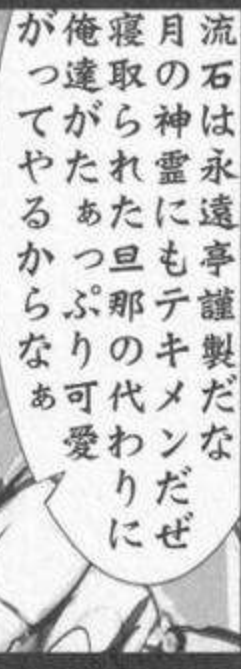 流石は永遠亭謹製だな
月の神霊にもテキメンだぜ
寝取られた旦那の代わりに
俺達がたぁっぷり可愛
がってやるからなぁ